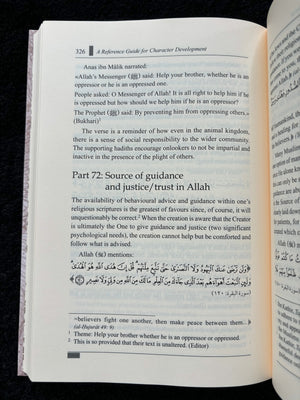 326 A Reference Guide for Character Development
Anas ibn Mālik narrated:
«Allah's Messenger (ﷺ) said: Help your brother, whether he is an
oppressor or he is an oppressed one.
People asked: O Messenger of Allah! It is all right to help him if he
is oppressed but how should we help him if he is an oppressor?
The Prophet (ﷺ) said: By preventing him from oppressing others.»
(Bukhari)¹
The verse is a reminder of how even in the animal kingdom,
there is a sense of social responsibility relating to the wider community.
The supporting hadiths encourage onlookers to not be impartial and
inactive in the presence of the plight of others.
Part 72: Source of guidance
and justice/trust in Allah
The availability of behavioural advice and guidance within one's
religious scriptures is the greatest of favours since, of course, it will
unquestionably be correct.² When the creation is aware that the Creator
is ultimately the One to give guidance and justice (two significant
psychological needs), the creation cannot help but be comforted and
follow what is advised.
Allah (ﷻ) mentions:
﴿وَلَن تَرْضَىٰ عَنكَ ٱلْيَهُودُ وَلَا ٱلنَّصَٰرَىٰ حَتَّىٰ تَتَّبِعَ مِلَّتَهُمْ قُلْ إِنَّ هُدَى ٱللَّهِ هُوَ ٱلْهُدَىٰ
وَلَئِنِ ٱتَّبَعْتَ أَهْوَآءَهُم بَعْدَ ٱلَّذِى جَآءَكَ مِنَ ٱلْعِلْمِ مَا لَكَ مِنَ ٱللَّهِ مِن وَلِىٍّ وَلَا نَصِيرٍ﴾
(سورة البقرة: ١٢٠)
~believers fight one another, then make peace between them...
(al-Hujurāt 49: 9)
1 Theme: Help your brother whether he an oppressor or oppressed.
2 This is so provided that their text is unaltered. (Editor)